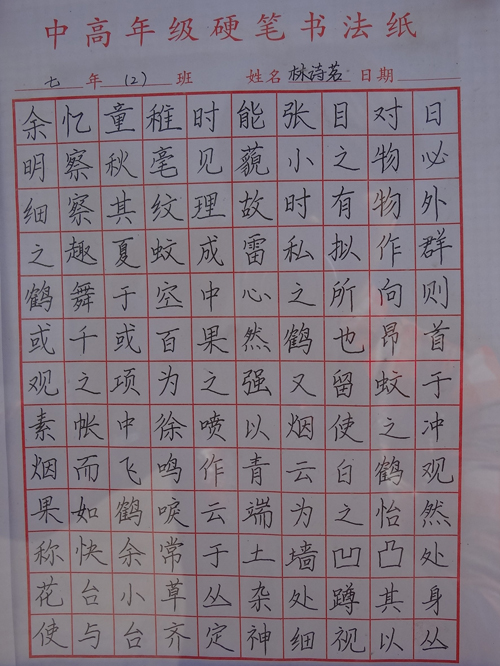 中高年级硬笔书法纸
七年(2)班 姓名林诗茗日期
余忆童稚时能张目对日
明察秋毫见藐小之物必
细察其纹理故时有物外
之趣夏蚊成雷私拟作群
鹤舞于空中心之所向则
或千或百果然鹤也昂首
观之项为之强又留蚊于
素帐中徐喷以烟使之冲
烟而飞鸣作青云白鹤观
果如鹤唳云端为之怡然
称快余常于土墙凹凸处
花台小草丛杂处蹲其身
使与台齐定神细视以丛